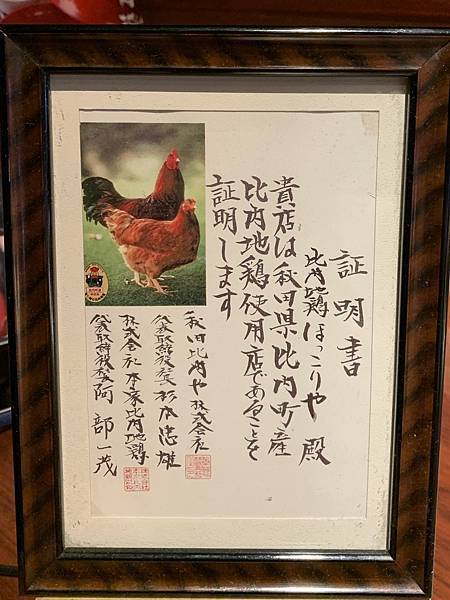 証明書
比内地鶏ほっこりや 殿
貴店は秋田県比内町産
比内地鶏使用店であることを
証明します
秋田比内や株式会社
代表取締役社長 杉本忠雄
株式会社本家比内地鶏
代表取締役 阿部一茂